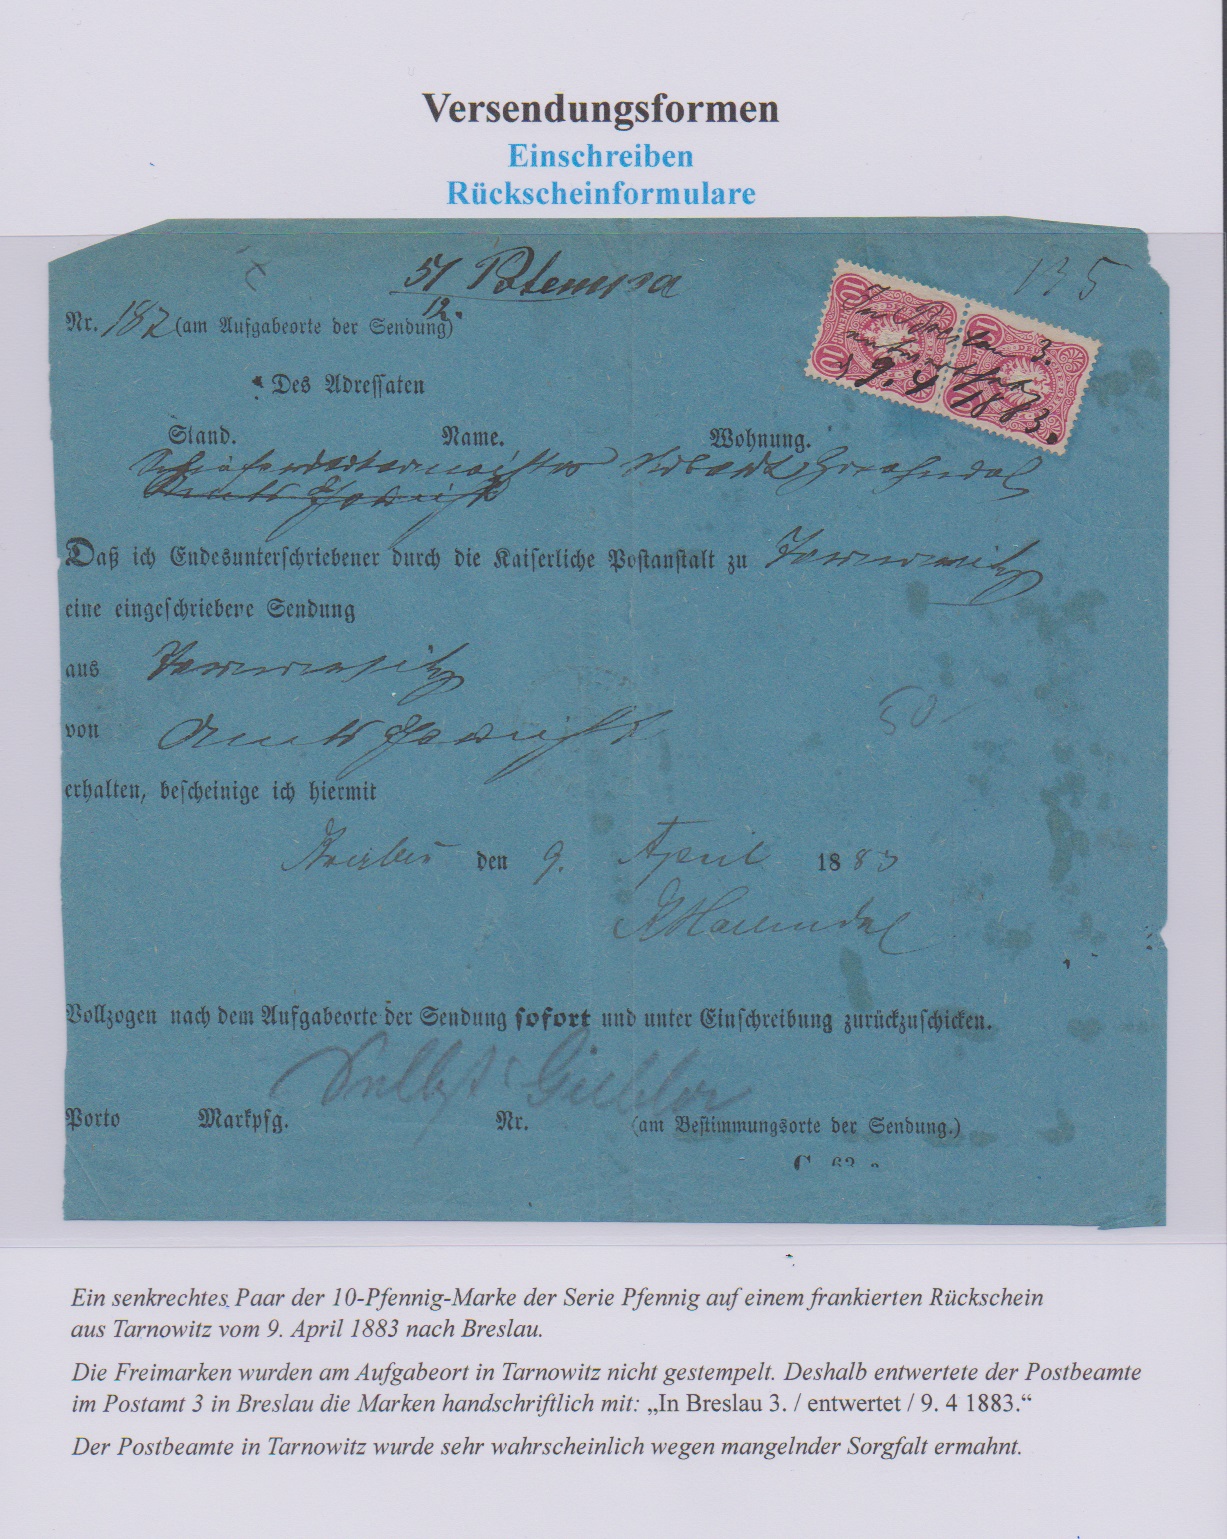 Versendungsformen
Einschreiben
Rückscheinformulare
51 Potempa
12.
135
Nr. 187 (am Aufgabeorte der Sendung)
In Breslau 3.
entwertet
9. 4 1883.
Des Adressaten
Stand. Name. Wohnung.
Amts Gericht
Daß ich Endesunterschriebener durch die Kaiserliche Postanstalt zu Tarnowitz
eine eingeschriebene Sendung
aus Tarnowitz
von Amts Gericht
50
erhalten, bescheinige ich hiermit
den 9. April 1883
Vollzogen nach dem Aufgabeorte der Sendung sofort und unter Einschreibung zurückzuschicken.
Selbst
Porto Markpfg. Nr. (am Bestimmungsorte der Sendung.)
Ein senkrechtes Paar der 10-Pfennig-Marke der Serie Pfennig auf einem frankierten Rückschein
aus Tarnowitz vom 9. April 1883 nach Breslau.
Die Freimarken wurden am Aufgabeort in Tarnowitz nicht gestempelt. Deshalb entwertete der Postbeamte
im Postamt 3 in Breslau die Marken handschriftlich mit: „In Breslau 3. / entwertet / 9. 4 1883.“
Der Postbeamte in Tarnowitz wurde sehr wahrscheinlich wegen mangelnder Sorgfalt ermahnt.